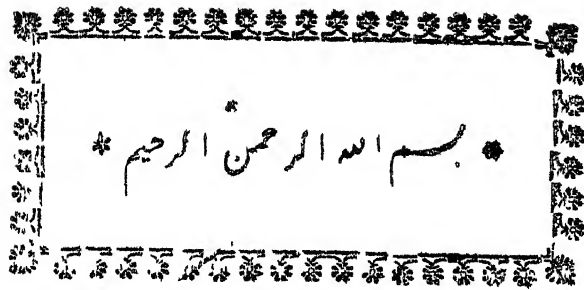 * بسم الله الرحمن الرحيم *